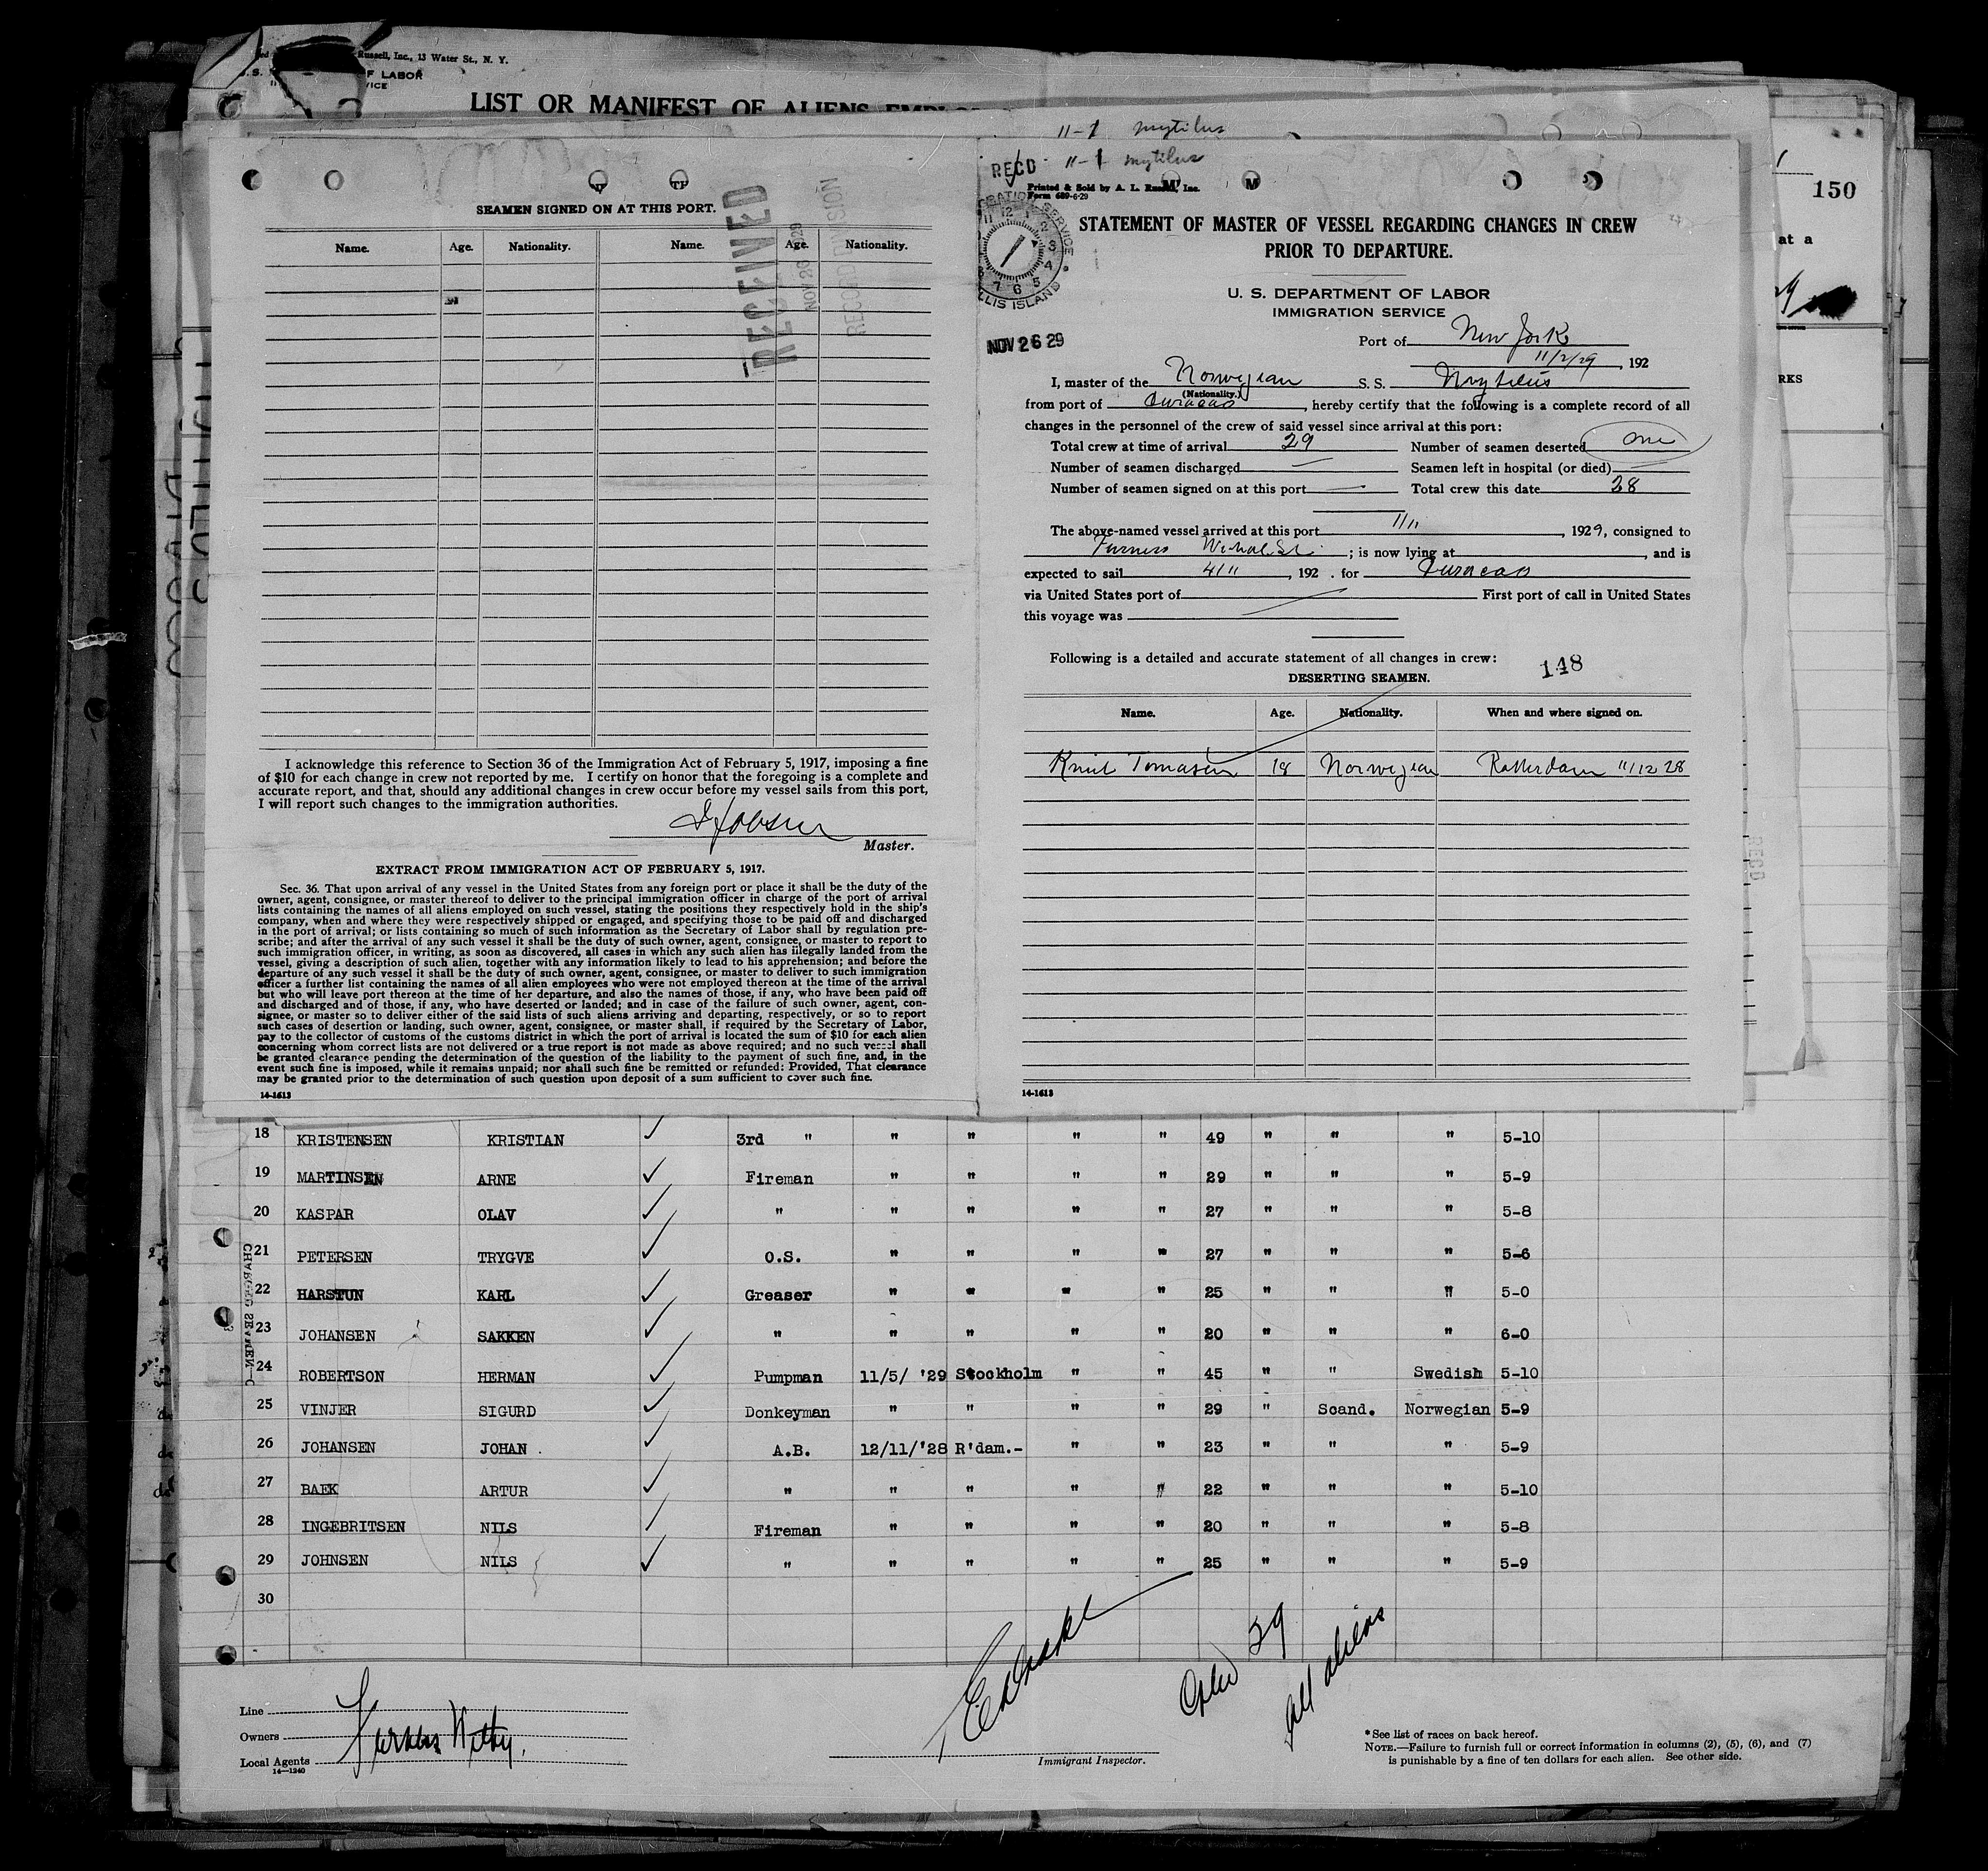 Russell, Inc., 13 Water St., N. Y.
F LABOR
VICE
LIST OR MANIFEST OF ALIENS
11-1 mytilus
150
at a
RKS
SEAMEN SIGNED ON AT THIS PORT.
Name. Age. Nationality. Name. Age. Nationality.
RECEIVED
NOV 26 29
I acknowledge this reference to Section 36 of the Immigration Act of February 5, 1917, imposing a fine
of $10 for each change in crew not reported by me. I certify on honor that the foregoing is a complete and
accurate report, and that, should any additional changes in crew occur before my vessel sails from this port,
I will report such changes to the immigration authorities.
Master.
EXTRACT FROM IMMIGRATION ACT OF FEBRUARY 5, 1917.
Sec. 36. That upon arrival of any vessel in the United States from any foreign port or place it shall be the duty of the
owner, agent, consignee, or master thereof to deliver to the principal immigration officer in charge of the port of arrival
lists containing the names of all aliens employed on such vessel, stating the positions they respectively hold in the ship's
company, when and where they were respectively shipped or engaged, and specifying those to be paid off and discharged
in the port of arrival; or lists containing so much of such information as the Secretary of Labor shall by regulation pre-
scribe; and after the arrival of any such vessel it shall be the duty of such owner, agent, consignee, or master to report to
such immigration officer, in writing, as soon as discovered, all cases in which any such alien has illegally landed from the
vessel, giving a description of such alien, together with any information likely to lead to his apprehension; and before the
departure of any such vessel it shall be the duty of such owner, agent, consignee, or master to deliver to such immigration
officer a further list containing the names of all alien employees who were not employed thereon at the time of the arrival
but who will leave port thereon at the time of her departure, and also the names of those, if any, who have been paid off
and discharged and of those, if any, who have deserted or landed; and in case of the failure of such owner, agent, con-
signee, or master so to deliver either of the said lists of such aliens arriving and departing, respectively, or so to report
such cases of desertion or landing, such owner, agent, consignee, or master shall, if required by the Secretary of Labor,
pay to the collector of customs of the customs district in which the port of arrival is located the sum of $10 for each alien
concerning whom correct lists are not delivered or a true report is not made as above required; and no such vessel shall
be granted clearance pending the determination of the question of the liability to the payment of such fine, and, in the
event such fine is imposed, while it remains unpaid; nor shall such fine be remitted or refunded: Provided, That clearance
may be granted prior to the determination of such question upon deposit of a sum sufficient to cover such fine.
14-1613
RECD 11-1 mytilus
Printed & Sold by A. L. Russell, Inc.
Form 689-6-29
STATEMENT OF MASTER OF VESSEL REGARDING CHANGES IN CREW
PRIOR TO DEPARTURE.
U. S. DEPARTMENT OF LABOR
IMMIGRATION SERVICE
NOV 26 29
Port of New York
11/2/29, 192
I, master of the Norwegian S. S. Mytilus
(Nationality.)
from port of Curacao, hereby certify that the following is a complete record of all
changes in the personnel of the crew of said vessel since arrival at this port:
Total crew at time of arrival 29 Number of seamen deserted one
Number of seamen discharged — Seamen left in hospital (or died) —
Number of seamen signed on at this port — Total crew this date 28
The above-named vessel arrived at this port 1/11, 1929, consigned to
Furness ; is now lying at , and is
expected to sail 4/11, 192 . for Curacao
via United States port of First port of call in United States
this voyage was
Following is a detailed and accurate statement of all changes in crew:
148
DESERTING SEAMEN.
Name. Age. Nationality. When and where signed on.
Knut Tomasen 18 Norwegian Rotterdam 11/12 28
14-1613
18 KRISTENSEN KRISTIAN 3rd " " " " " 49 " " " 5-10
19 MARTINSEN ARNE Fireman " " " " 29 " " " 5-9
20 KASPAR OLAV " " " " " 27 " " " 5-8
21 PETERSEN TRYGVE O.S. " " " " 27 " " " 5-6
22 HARSTUN KARL Greaser " " " " 25 " " " 5-0
23 JOHANSEN SAKKEN " " " " " 20 " " " 6-0
24 ROBERTSON HERMAN Pumpman 11/5/ '29 Stockholm " " 45 " " Swedish 5-10
25 VINJER SIGURD Donkeyman " " " " 29 " Scand. Norwegian 5-9
26 JOHANSEN JOHAN . A.B. 12/11/'28 R'dam.- " " 23 " " " 5-9
27 BAEK ARTUR " " " " " 22 " " " 5-10
28 INGEBRITSEN NILS Fireman " " " " 20 " " " 5-8
29 JOHNSEN NILS " " " " " 25 " " " 5-9
30
29
all aliens
Line
Owners Furness Withy.
Local Agents
14-1240
Immigrant Inspector.
*See list of races on back hereof.
NOTE.—Failure to furnish full or correct information in columns (2), (5), (6), and (7)
is punishable by a fine of ten dollars for each alien. See other side.